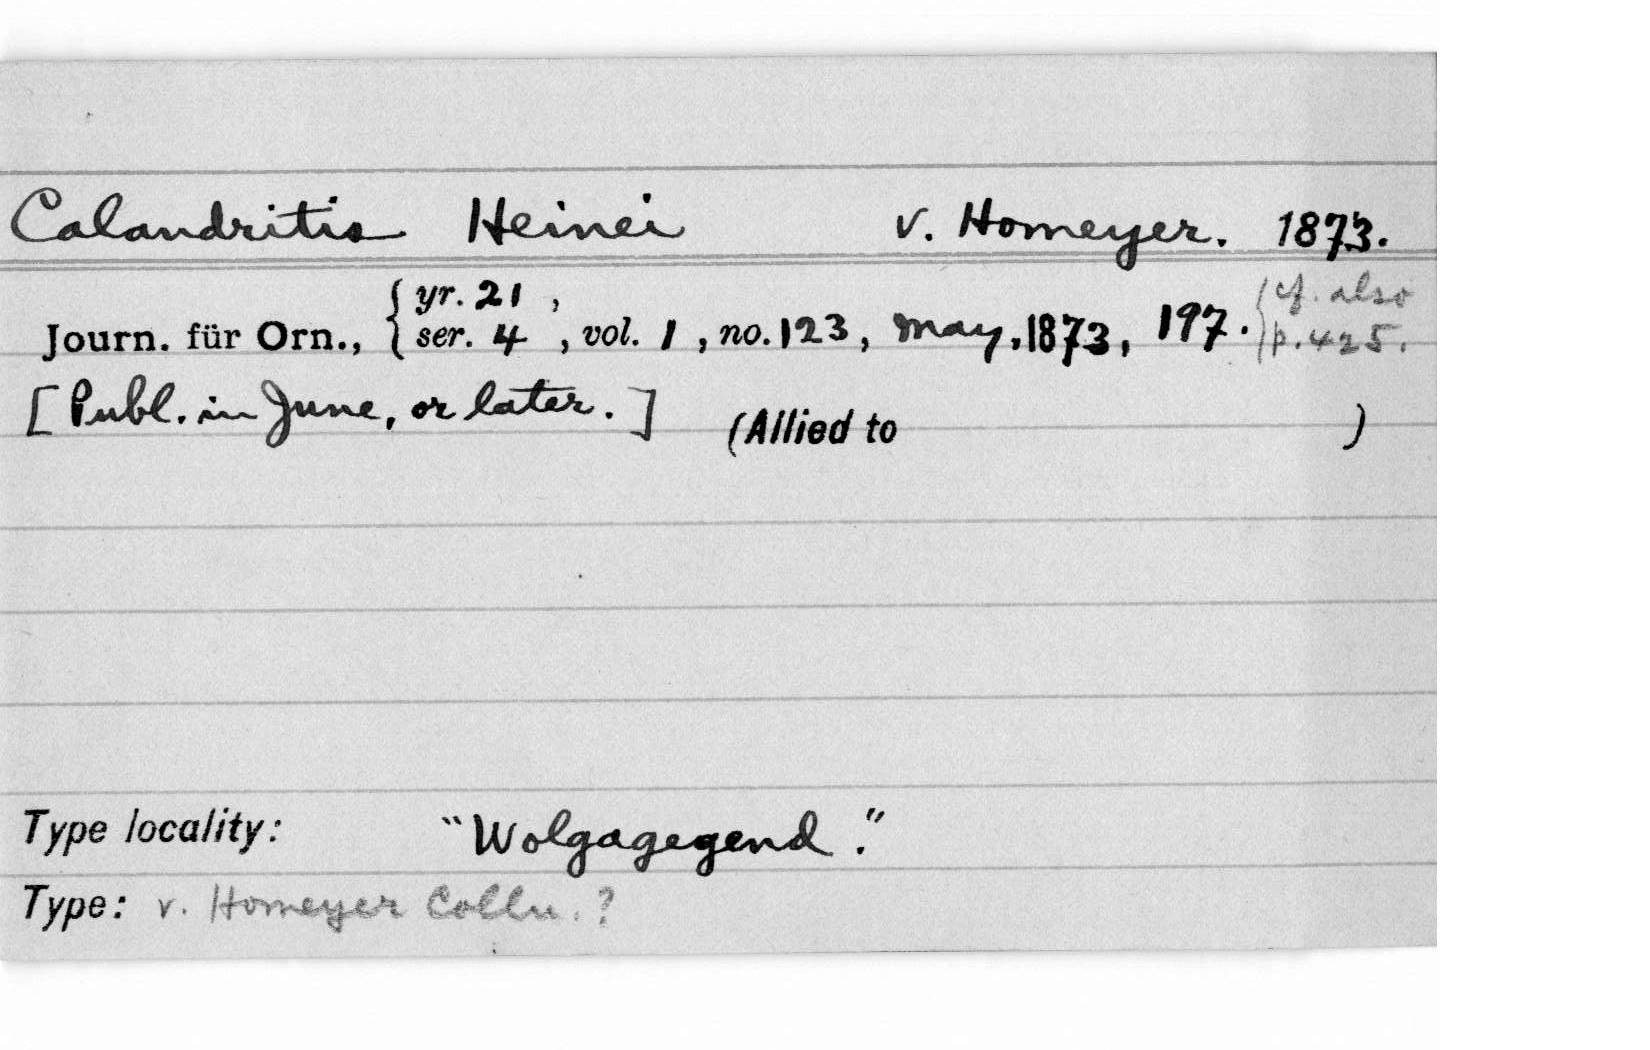 Calandritis Heinei v. Homeyer. 1873.
yr. 21 , (cf. also
Journ. für Orn., { ser. 4 , vol. 1 , no. 123, May, 1873, 197. p. 425.
[Publ. in June, or later.] (Allied to )
Type locality: "Wolgagegend."
Type: v. Homeyer Colln. ?